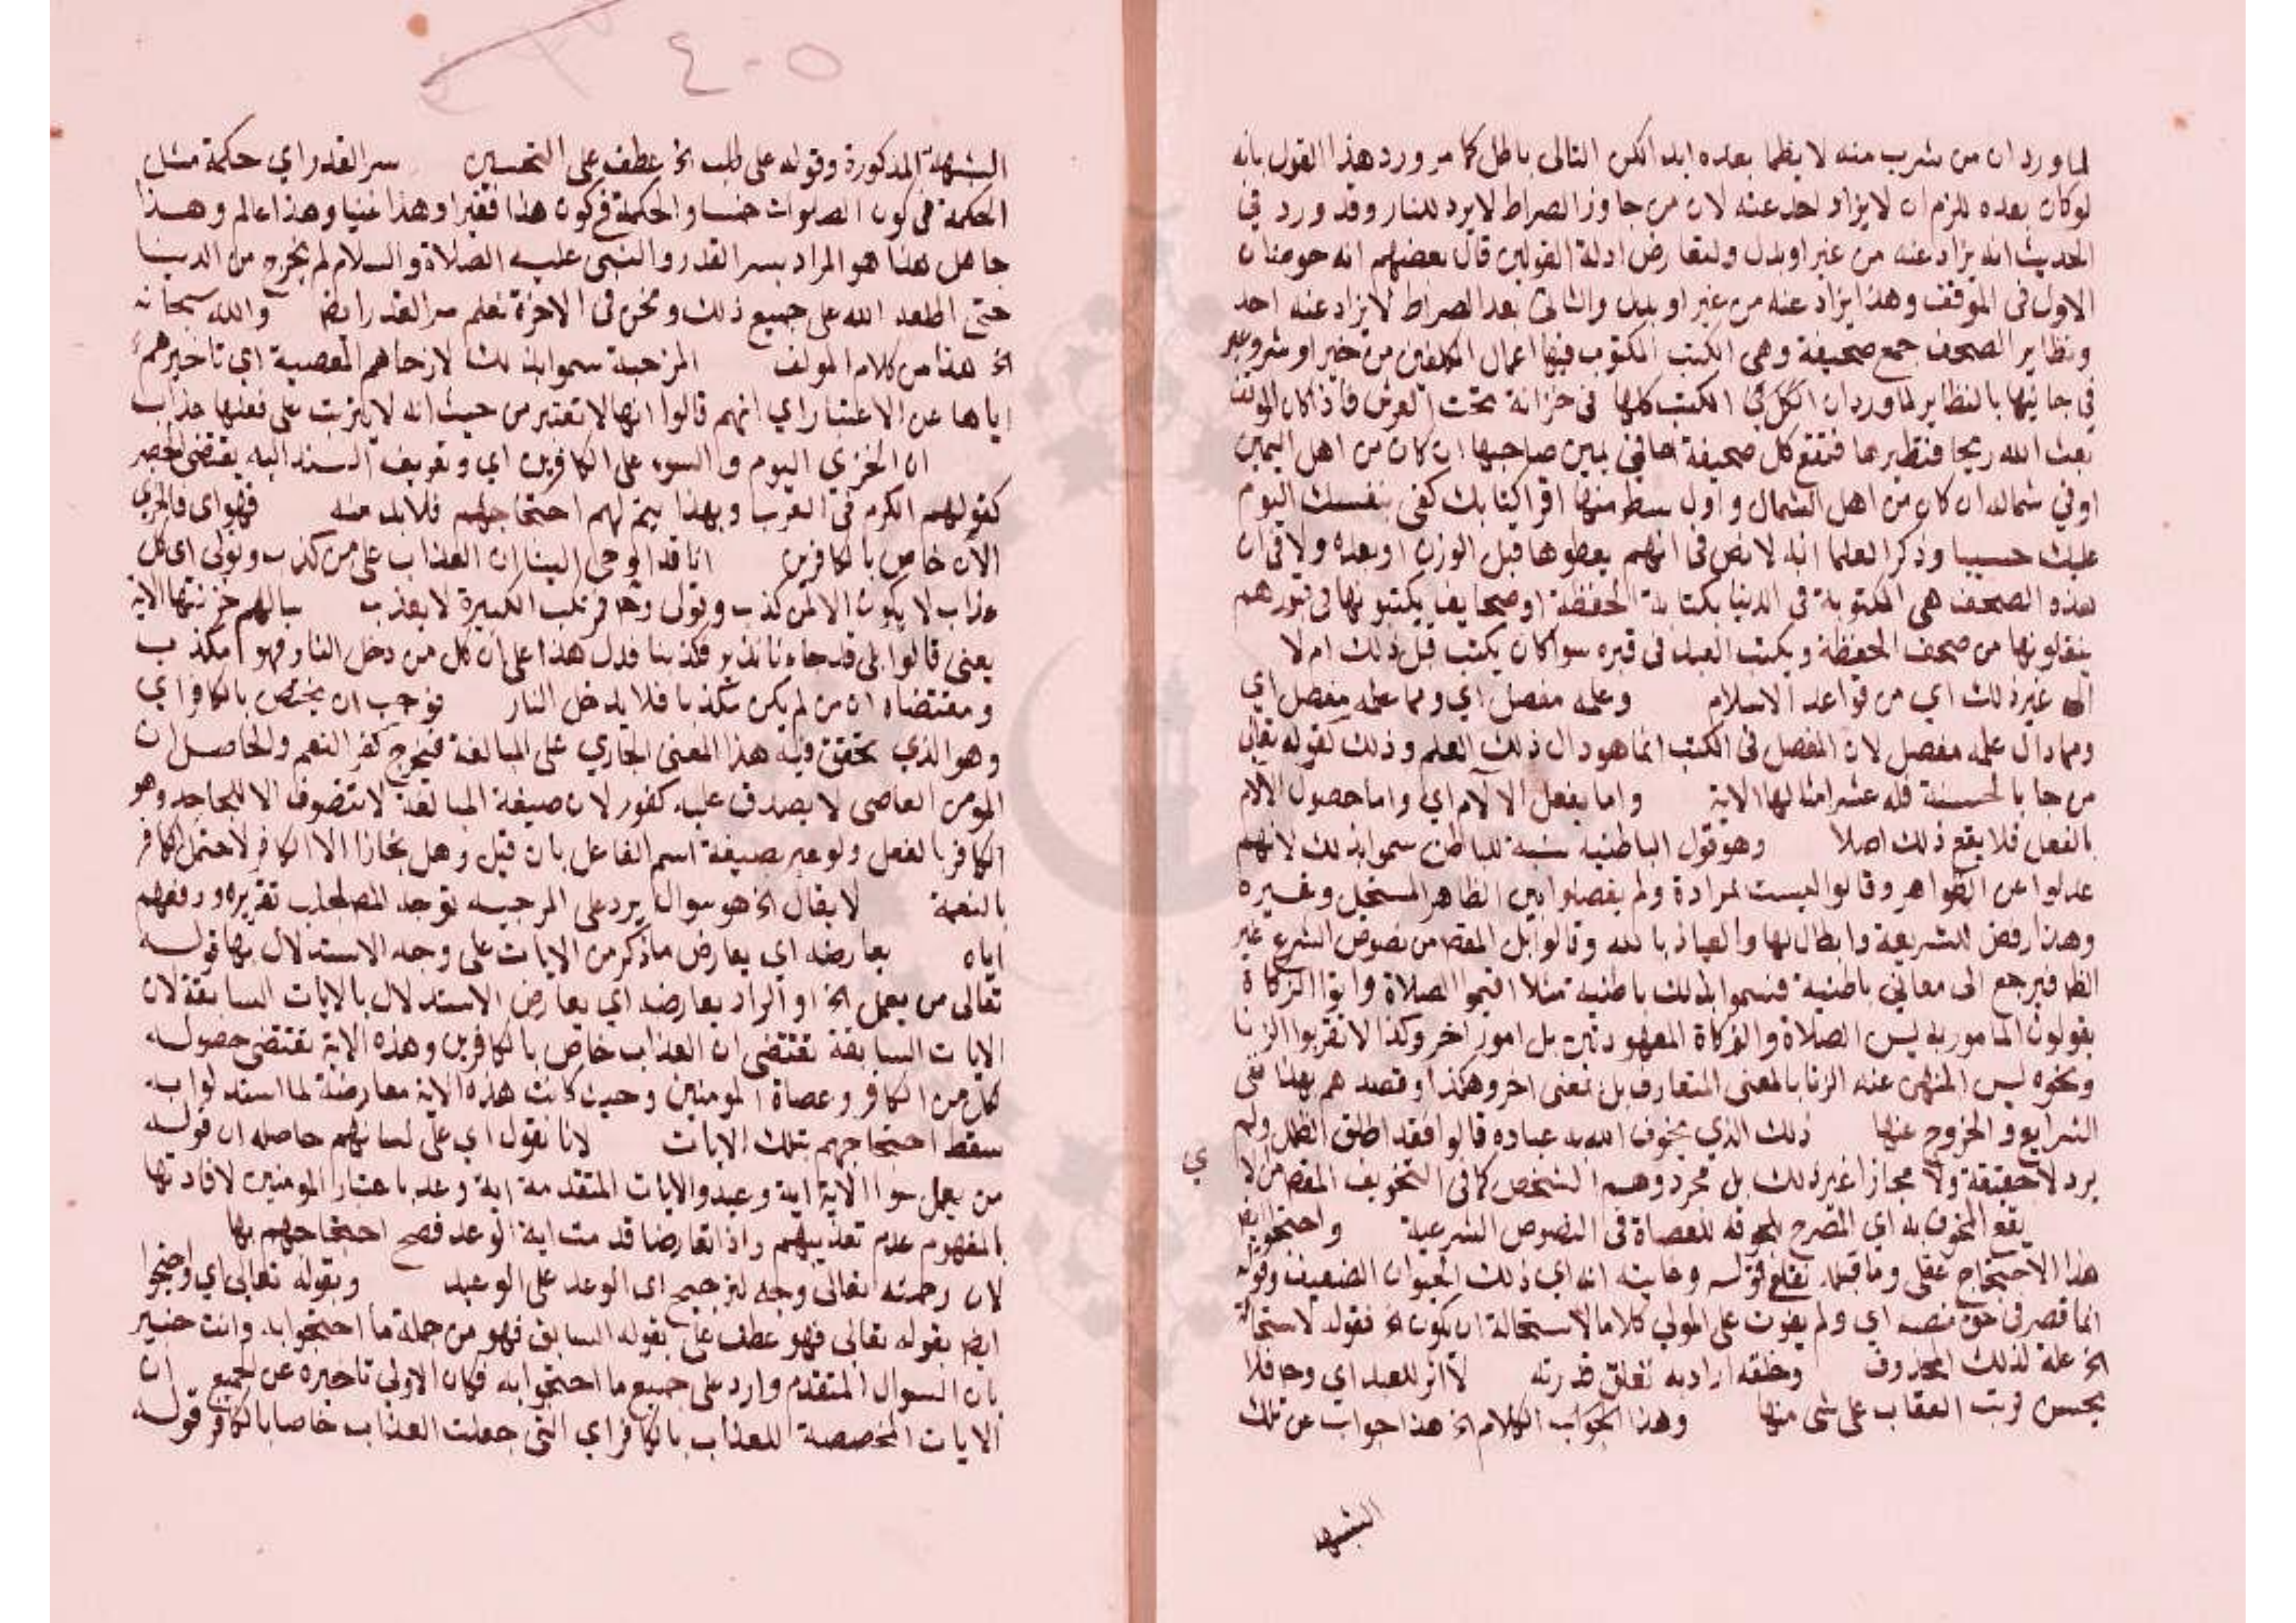 لما ورد ان من شرب منه لا يظما بعده ابدا لكن التالي باطل كما مر ورد هذا القول بانه
لو كان بعده للزم ان لا يزاد احد عنه لان من جاوز الصراط لا يرد للنار وقد ورد في
الحديث انه يزاد عنه من غير او بدل ولتعارض ادلة القولين قال بعضهم انه حوضان
الاول في الموقف وهذا يزاد عنه من غير او بدل والثاني بعد الصراط لا يزاد عنه احد
وتظاير الصحف جمع صحيفة وهي الكتب المكتوب فيها اعمال المكلفين من خير او شر وعبر
في جانبها بالتظاير لما ورد ان الكل في الكتب كلها في خزانة تحت العرش فاذا كان الموقف
بعث الله ريحا فتطيرها فتقع كل صحيفة اما في يمين صاحبها ان كان من اهل اليمين
او في شماله ان كان من اهل الشمال واول سطر منها اقرا كتابك كفى بنفسك اليوم
عليك حسيبا وذكر العلما انه لا نص في انهم يعطوها قبل الوزن او بعده ولا في ان
هذه الصحف هي المكتوبة في الدنيا بكتابة الحفظة او صحايف يكتبونها في قبورهم
ينقلونها من صحف الحفظة ويكتب العبد في قبره سوا كان يكتب قبل ذلك ام لا
غير ذلك اي من قواعد الاسلام وعلمه مفصل اي ومما علمه مفصل اي
ومما دال علمه مفصل لان المفصل في الكتب انما هو دال ذلك العلم وذلك كقوله تعالى
من جا بالحسنة فله عشر امثالها الاية واما بفعل الآلام اي واما حصول الالام
بالفعل فلا يقع ذلك اصلا وهو قول الباطنيه نسبة للباطن سموا بذلك لانهم
عدلوا عن الظواهر وقالوا ليست لمرادة ولم يفصلوا بين الظاهر المستحيل وغيره
وهذا رفض للشريعة وابطال لها والعياذ بالله وقالوا بل المقص من نصوص الشرع غير
الظا فيرجع الى معاني باطنية فسموا بذلك باطنيه مثلا اقيموا الصلاة واتوا الزكاة
يقولون المامور به ليس الصلاة والزكاة المعهودتين بل امور اخر وكذا لا تقربوا الزنا
ونحوه ليس المنهي عنه الزنا بالمعنى المتعارف بل بمعنى اخر وهكذا وقصدهم بهذا نفي
الشرايع والخروج عنها ذلك الذي يخوف الله به عباده قالوا فقد اطلق الظلل ولم
يرد لا حقيقة ولا مجازا غير ذلك بل مجرد وهم الشخص كما في التخويف المقص من لا
ي
يقع المخوف به اي المصرح بخوفه للعصاة في النصوص الشرعية واحتجوا بقا
هذا الاحتجاج عقلي وما قبله نقلي قوله وغايته انه اي ذلك الحيوان الضعيف وقوله
انما قصر في حق نفسه اي ولم يفوت على المولى كلاما لاستحالة ان يكون الخ فقوله لاستحالة
الخ علة لذلك المحذوف وخلقه ارادته تعلق قدرته لا اثر للعبد اي وحا فلا
يحسن ترتب العقاب على شي منها وهذا الجواب الكلام الخ هذا جواب عن تلك
الشبهة
٤٠٥
الشبهة المذكورة وقوله على طلب الخ عطف على التحسين سر القدر اي حكمة مثل
الحكمة في كون الصلوات خمسا والحكمة في كون هذا فقيرا وهذا غنيا وهذا عالم وهذا
جاهل هذا هو المراد بسر القدر والنبي عليه الصلاة والسلام لم يخرج من الدنيا
حتى اطلعه الله على جميع ذلك ونحن في الاخرة نعلم سر القدر ايض والله سبحانه
الخ هذا من كلام المولف المرجية سموا بذلك لارجاهم المعصية اي تاخيرهم
اياها عن الاعتبار اي انهم قالوا انها لا تعتبر من حيث انه لا يترتب على فعلها عذاب
ان الخزي اليوم والسوء على الكافرين اي وتعريف المسند اليه يقتضي الحصر
كقولهم الكرم في العرب وبهذا يتم لهم احتجاجهم فلا بد منه فهو اي فالخزي
الآن خاص بالكافرين انا قد اوحي الينا ان العذاب على من كذب وتولى اي كل
عذاب لا يكون الا لمن كذب وتولى وحا فمرتكب الكبيرة لا يعذب سالهم خزنتها الاية
يعني قالوا بلى قد جاءنا نذير فكذبنا فدل هذا على ان كل من دخل النار فهو مكذب
ومقتضاه ان من لم يكن مكذبا فلا يدخل النار فوجب ان يختص بالكافر اي
وهو الذي تحقق فيه هذا المعنى الجاري على المبالغة فيخرج كفر النعم والحاصل ان
المومن العاصي لا يصدق عليه كفور لان صيغة المبالغة لا تنصرف الا للجاحد وهو
الكافر بالفعل ولو عبر بصيغة اسم الفاعل بان قيل وهل يجازا الا الكافر لاحتمل الكافر
بالنعمة لا يقال الخ هو سوال يرد على المرجيه توجد المصطلحات تقريره ودفعهم
اياه يعارضه اي يعارض ما ذكر من الايات على وجه الاستدلال بها قوله
تعالى من يعمل الخ او المراد يعارضه اي يعارض الاستدلال بالايات السابقة لان
الايات السابقة تقتضي ان العذاب خاص بالكافرين وهذه الاية تقتضي حصوله
لكل من الكافر وعصاة المومنين وحيث كانت هذه الاية معارضة لما استدلوا به
سقط احتجاجهم بتلك الايات لانا نقول اي على لسانهم حاصله ان قوله
من يعمل سوا الاية اية وعيد والايات المتقدمة اية وعد باعتبار المومنين لافادتها
بالمفهوم عدم تعذيبهم واذا تعارضا قدمت اية الوعد فصح احتجاجهم بها
لان رحمته تعالى وجه لترجيح اي الوعد على الوعيد وبقوله تعالى اي واحتجوا
ايض بقوله تعالى فهو عطف على بقوله السابق فهو من جملة ما احتجوا به وانت خبير
بان السوال المتقدم وارد على جميع ما احتجوا به فكان الاولى تاخيره عن الجميع ان
الايات المخصصة للعذاب بالكافر اي التي جعلت العذاب خاصا بالكافر قوله